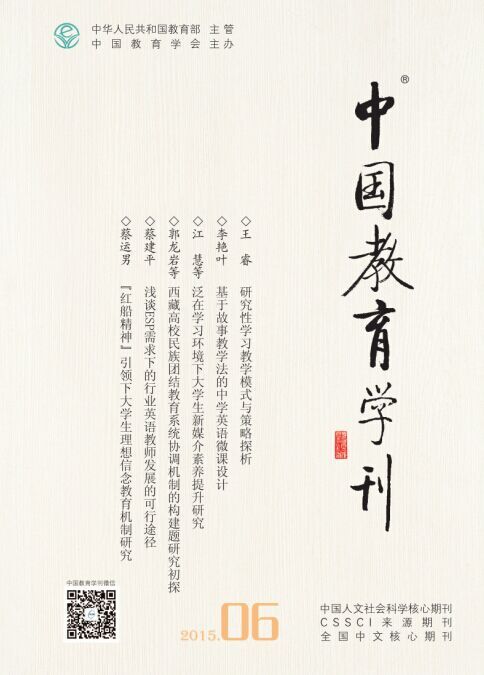 中华人民共和国教育部 主管
中国教育学会 主办
中国教育学刊®
◇王 睿 研究性学习教学模式与策略探析
◇李艳叶 基于故事教学法的中学英语微课设计
◇江 慧等 泛在学习环境下大学生新媒介素养提升研究
◇郭龙岩等 西藏高校民族团结教育系统协调机制的构建题研究初探
◇蔡建平 浅谈ESP需求下的行业英语教师发展的可行途径
◇蔡运男 『红船精神』引领下大学生理想信念教育机制研究
中国教育学刊微信
2015.06
中国人文社会科学核心期刊
CSSCI来源期刊
全国中文核心期刊